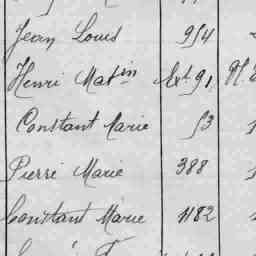 Jean Louis 954
Henri Matin
Constant Marie 53
Pierre Marie 388
Constant Marie 1182